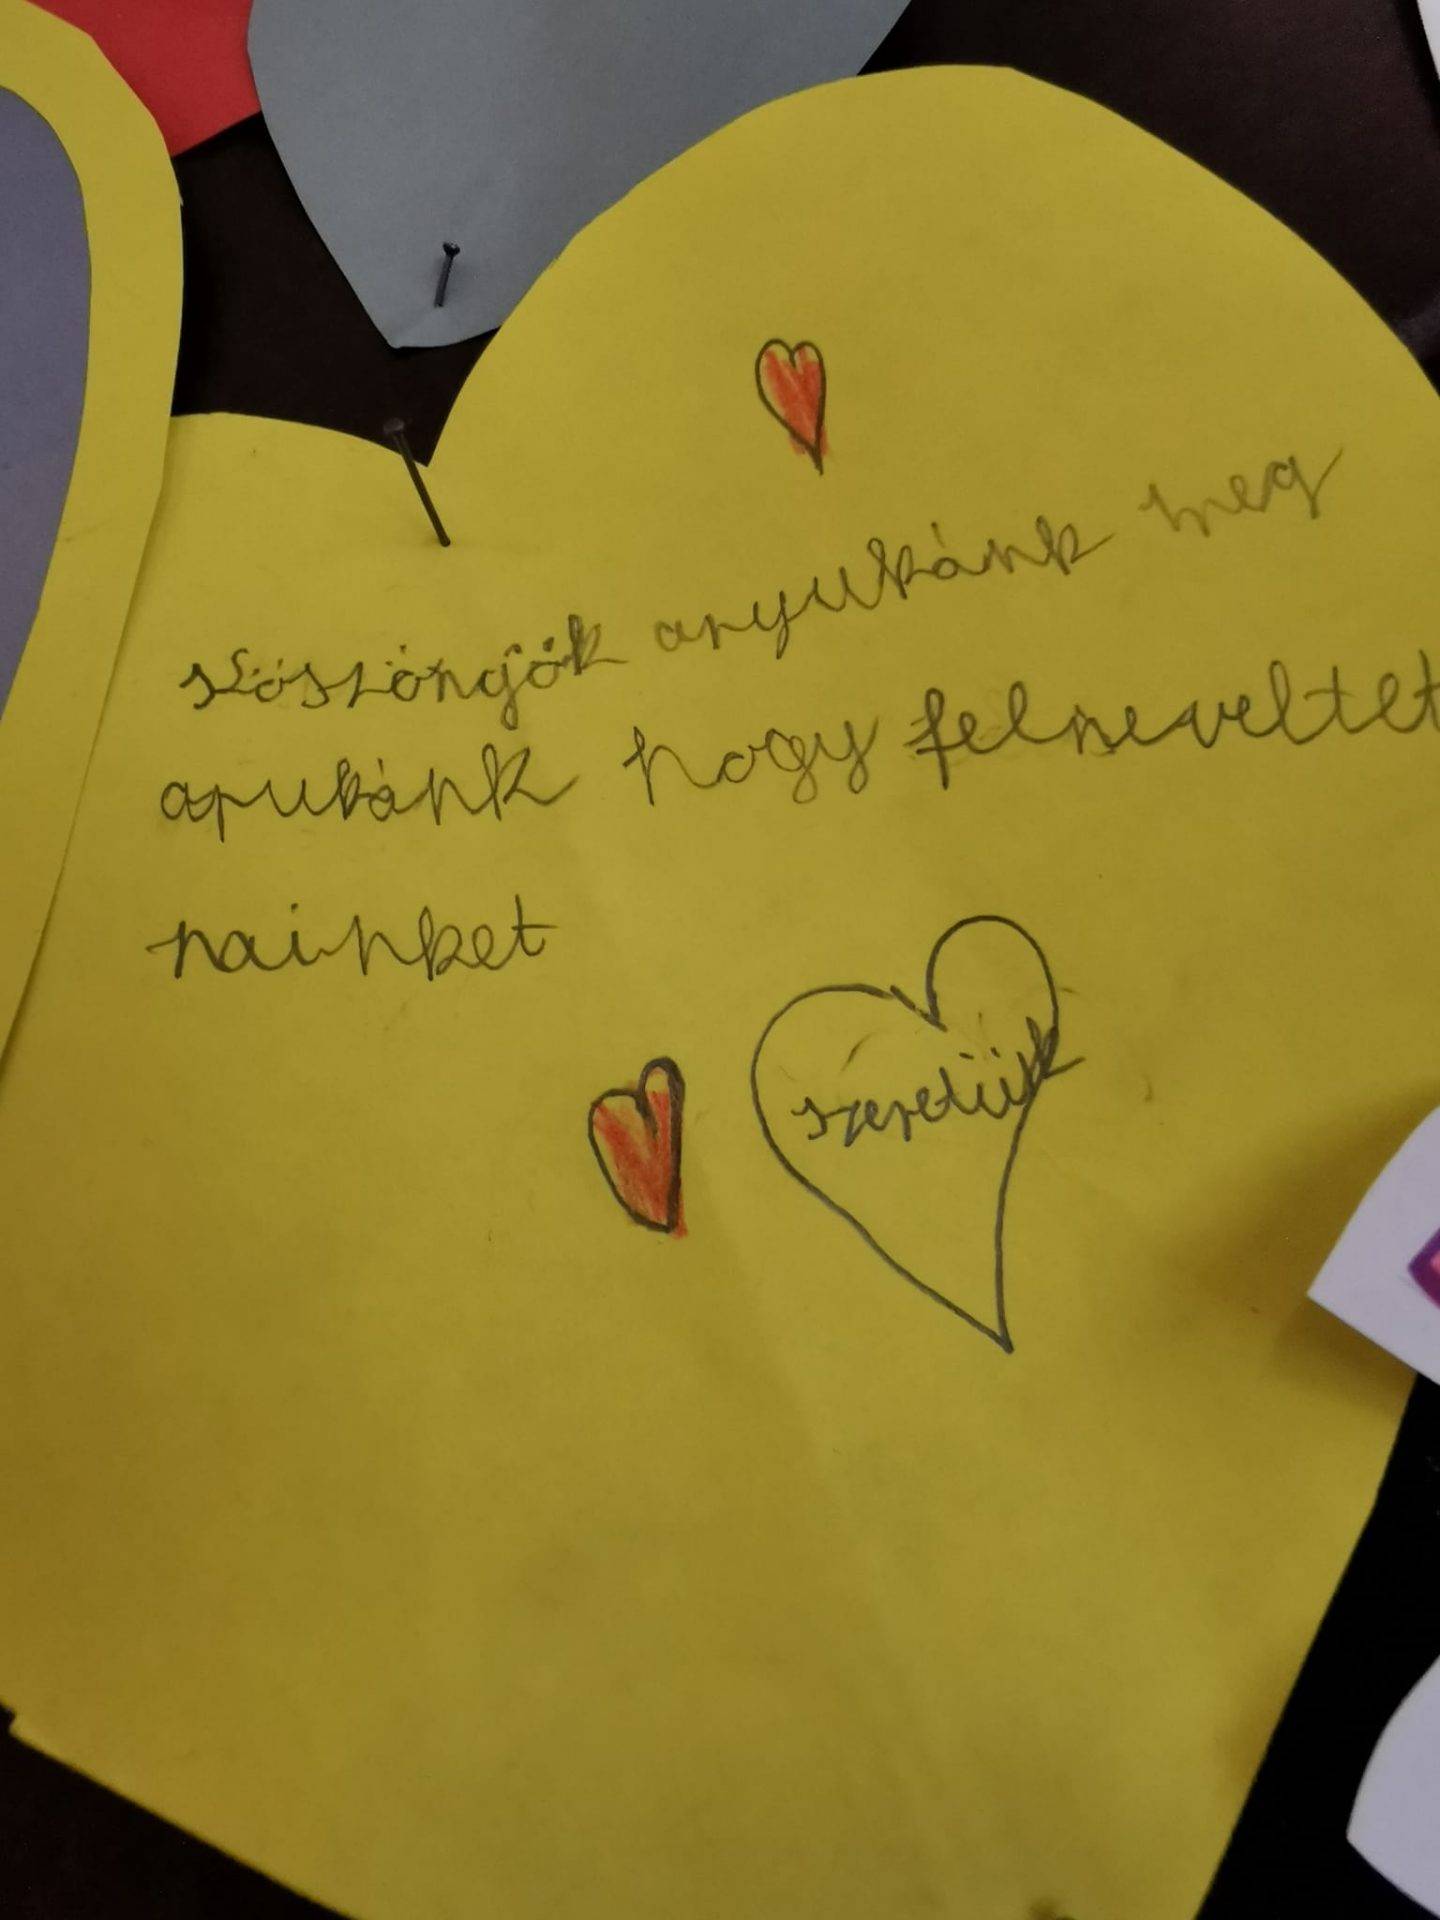 szöszöngjök anyukánk meg
apukánk hogy felneveltet
nainket
szeretük